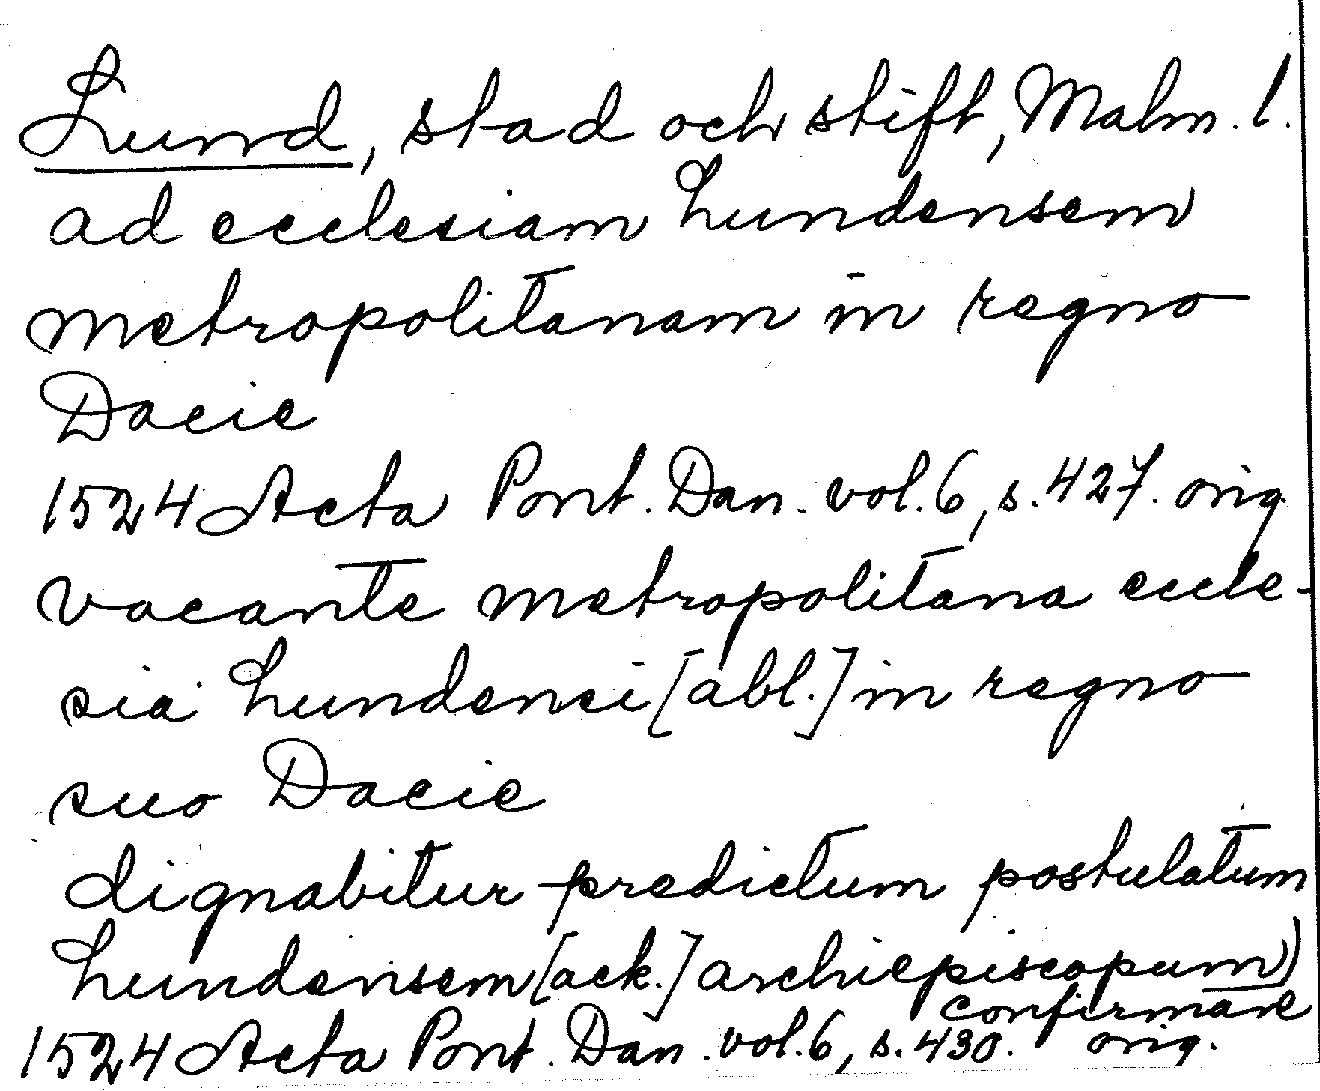 Lund, stad och stift, Malm. l.
ad ecclesiam Lundensem
metropolitanam in regno
Dacie
1524 Acta Pont. Dan. vol. 6, s. 427. orig.
vacante metropolitana eccle-
sia Lundensi [abl.] in regno
suo Dacie
dignabitur predictum postulatum
Lundensem [ack.] archiepiscopum)
confirmare
1524 Acta Pont. Dan. vol. 6, s. 430. orig.